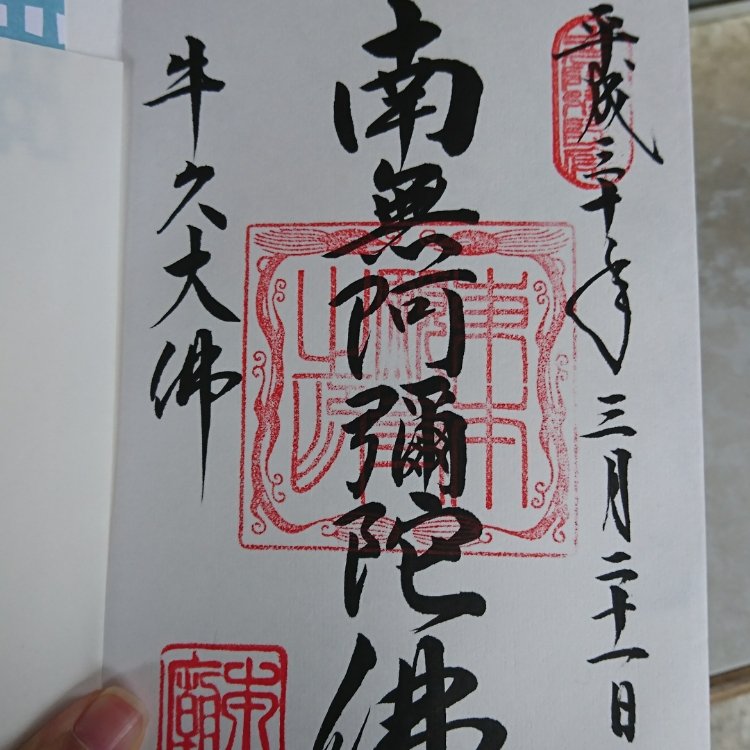 平成三十年三月二十一日
南無阿彌陀佛
牛久大佛